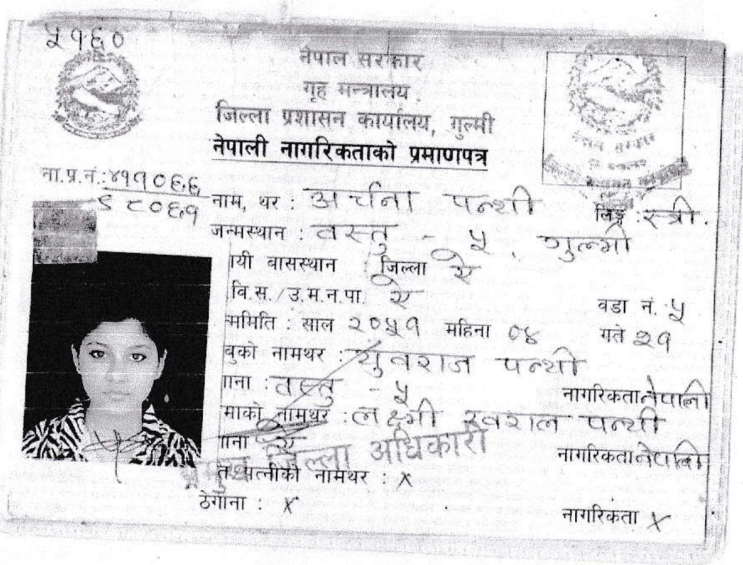 ५१६०
नेपाल सरकार
गृह मन्त्रालय
जिल्ला प्रशासन कार्यालय, गुल्मी
नेपाली नागरिकताको प्रमाणपत्र
ना.प्र.नं.: ४११०६६
६८०६१
नाम, थर : अर्चना पन्थी लिङ्ग : स्त्री.
जन्मस्थान : वस्तु - ५, गुल्मी
ायी वासस्थान : जिल्ला ऐ
वि.स./उ.म.न.पा. ऐ वडा नं. ५
ममिति : साल २०५१ महिना ०४ गते २१
बुको नामथर : युवराज पन्थी
गाना : वस्तु - ५ नागरिकता नेपाली
माको नामथर : लक्ष्मी खराल पन्थी
गाना ऐ नागरिकता नेपाली
जिल्ला अधिकारी
पत्नीको नामथर : X
ठेगाना : X नागरिकता X